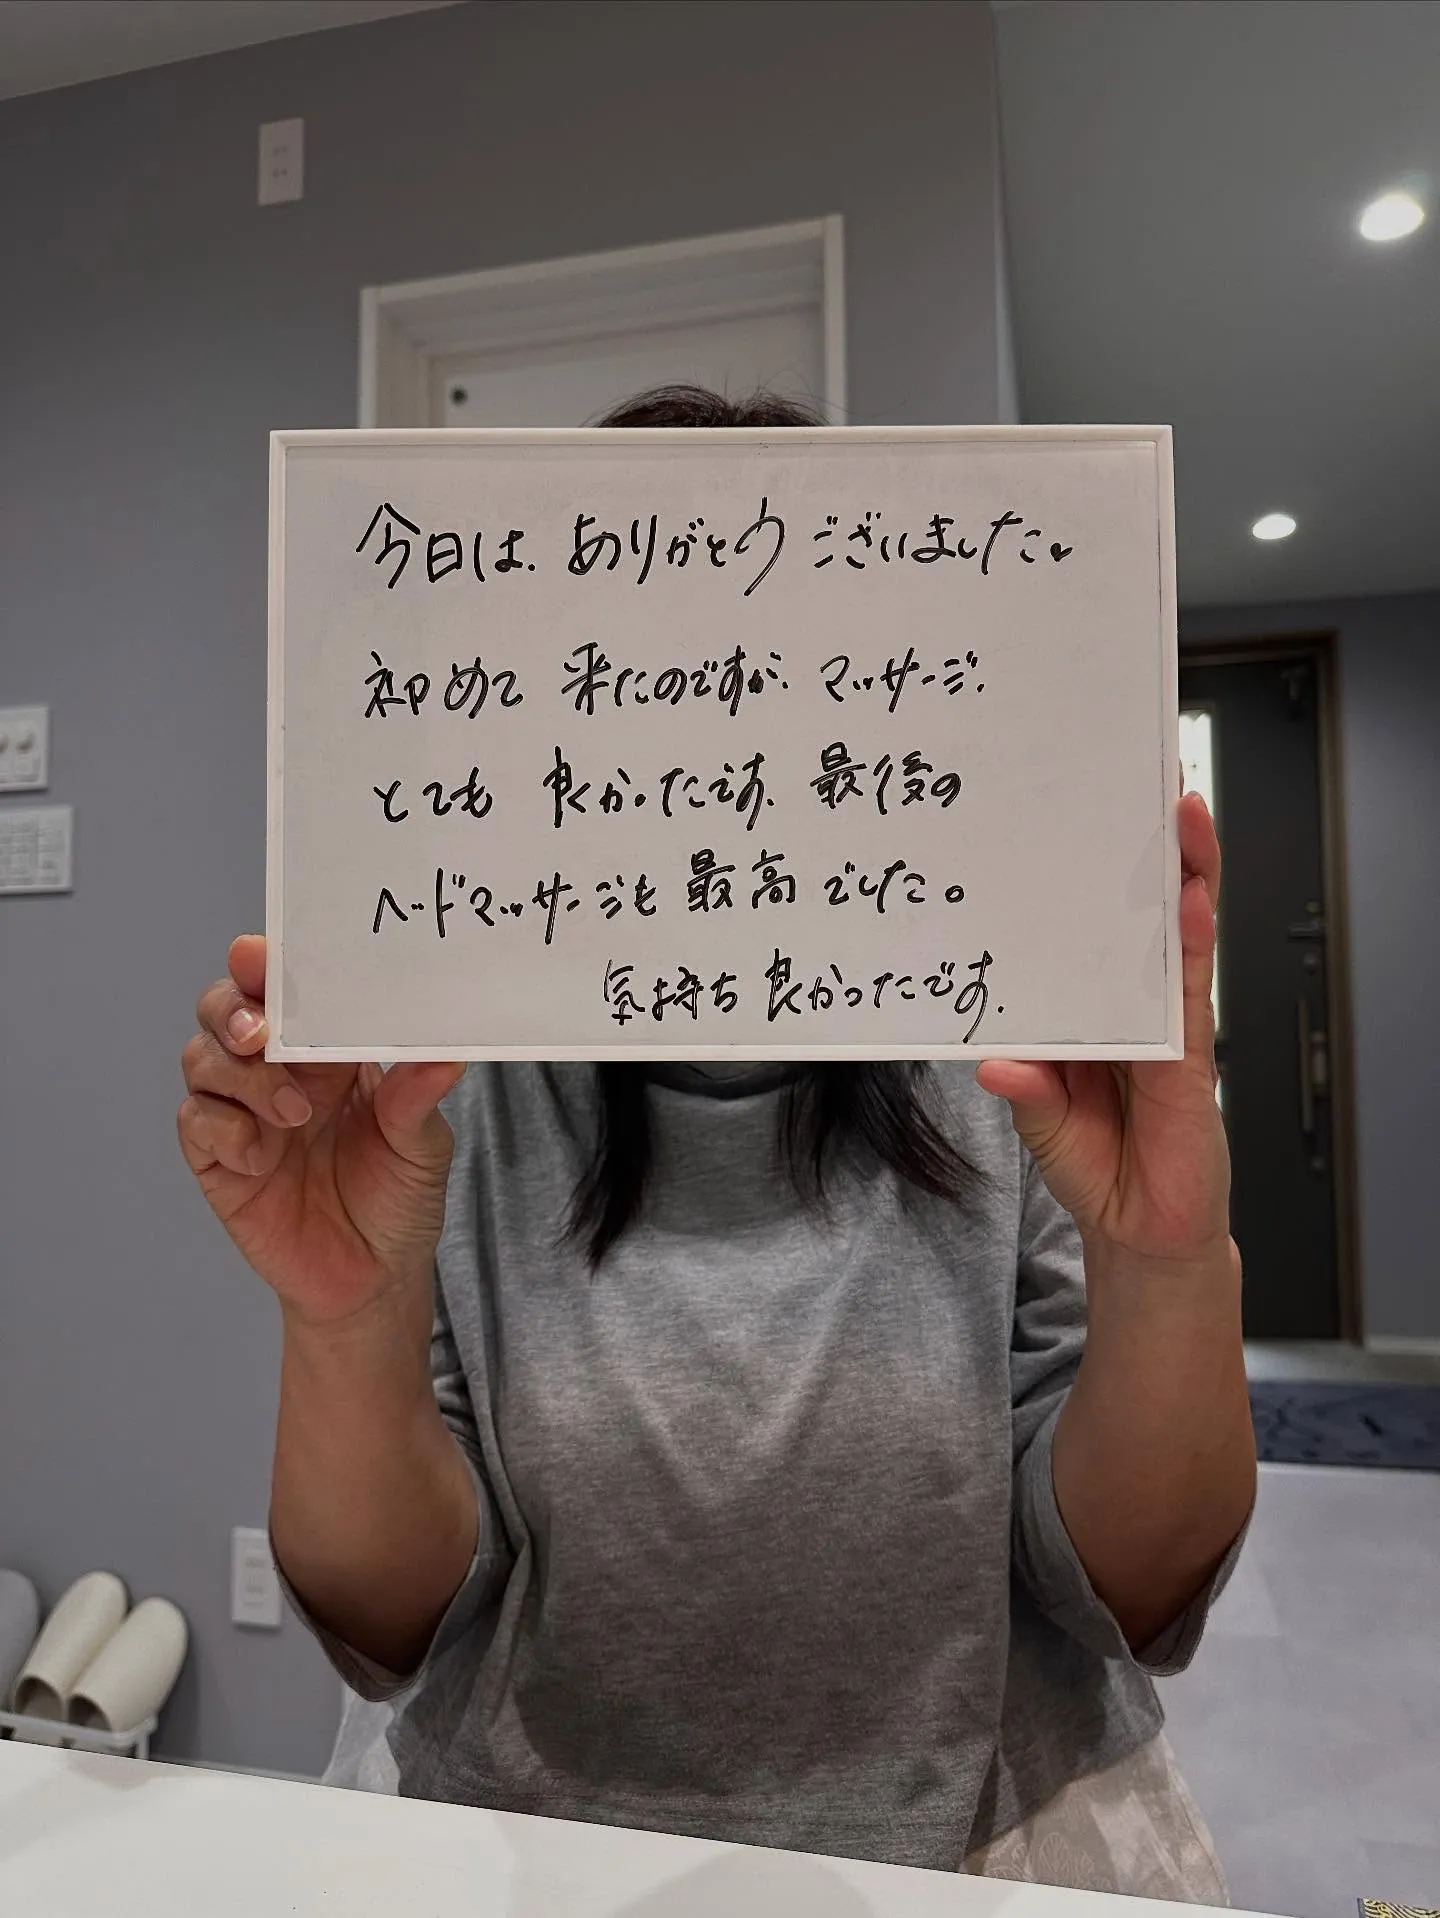 今日は、ありがとうございました。
初めて来たのですが、マッサージ、
とても良かったです。最後の
ヘッドマッサージも最高でした。
気持ち良かったです。